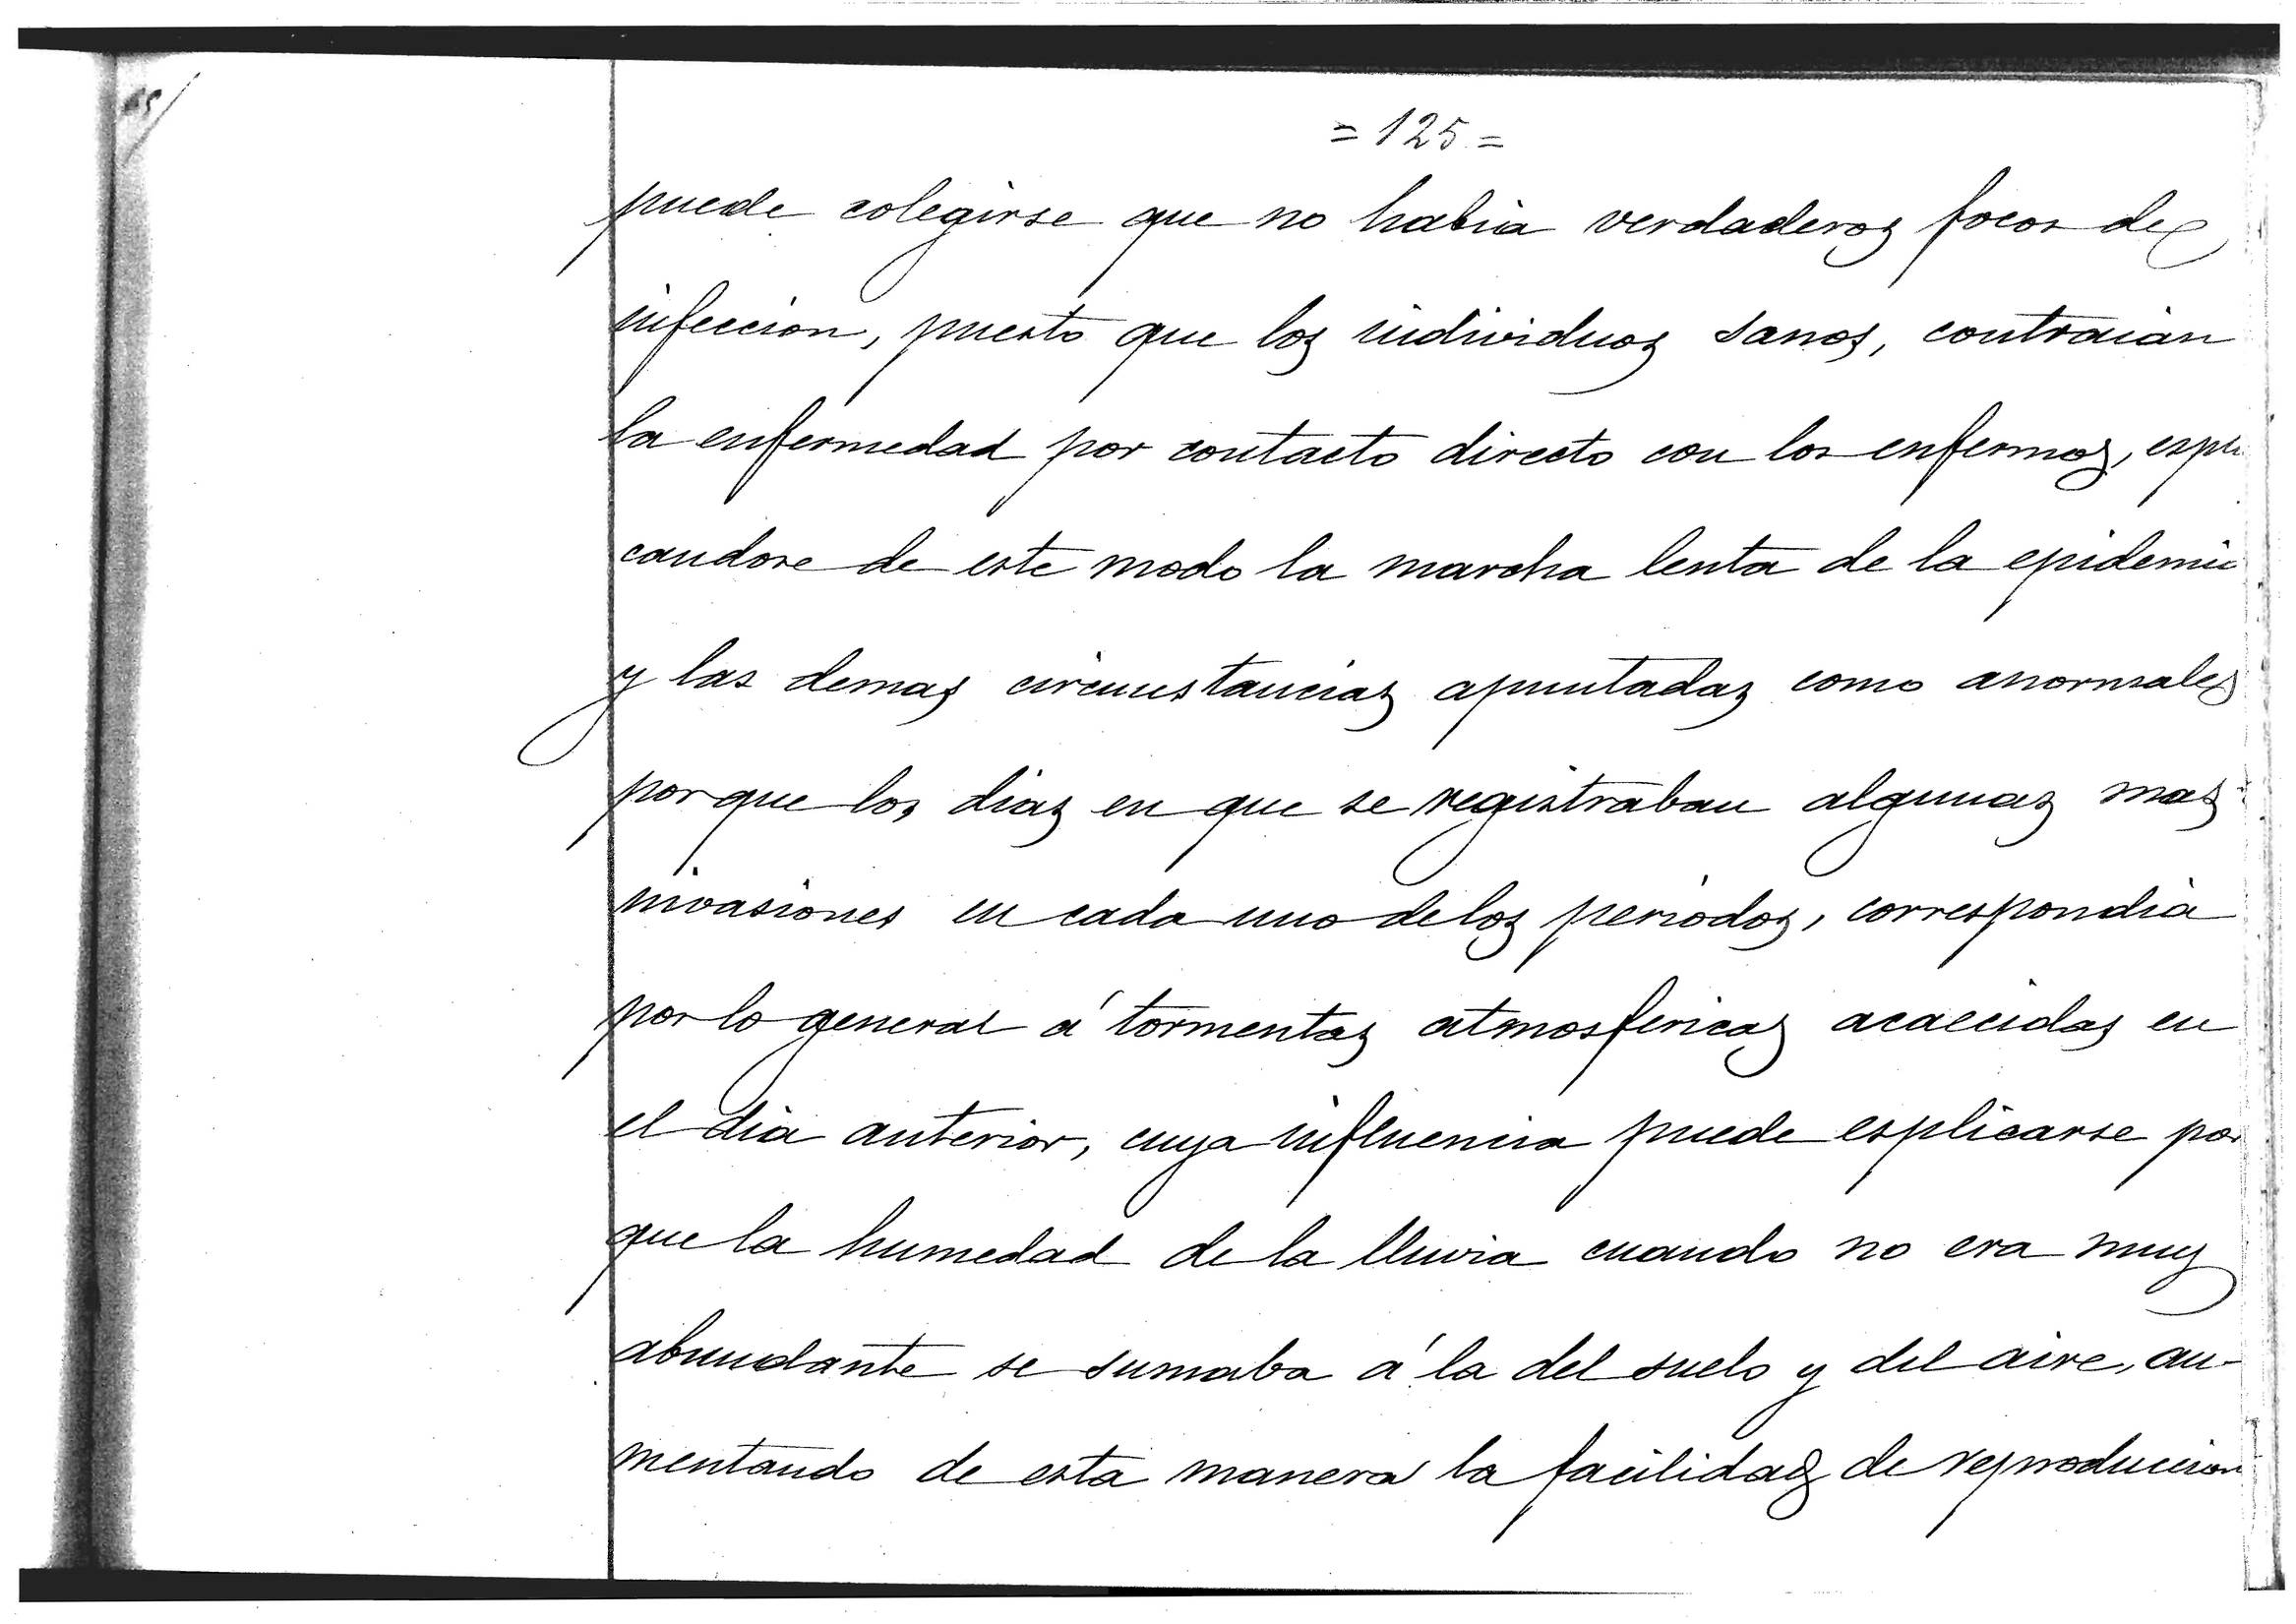 = 125 =
puede colegirse que no habia verdaderos focos de
infeccion, puesto que los individuos sanos, contraian
la enfermedad por contacto directo con los enfermos, espli
candose de este modo la marcha lenta de la epidemia
y las demas circunstancias apuntadas como anormales
porque los dias en que se registraban algunas mas
invasiones en cada uno de los periodos, correspondia
por lo general á tormentas atmosfericas acaecidas en
el dia anterior, cuya influencia puede esplicarse por
que la humedad de la lluvia cuando no era muy
abundante se sumaba á la del suelo y del aire, au-
mentando de esta manera la facilidad de reproduccion